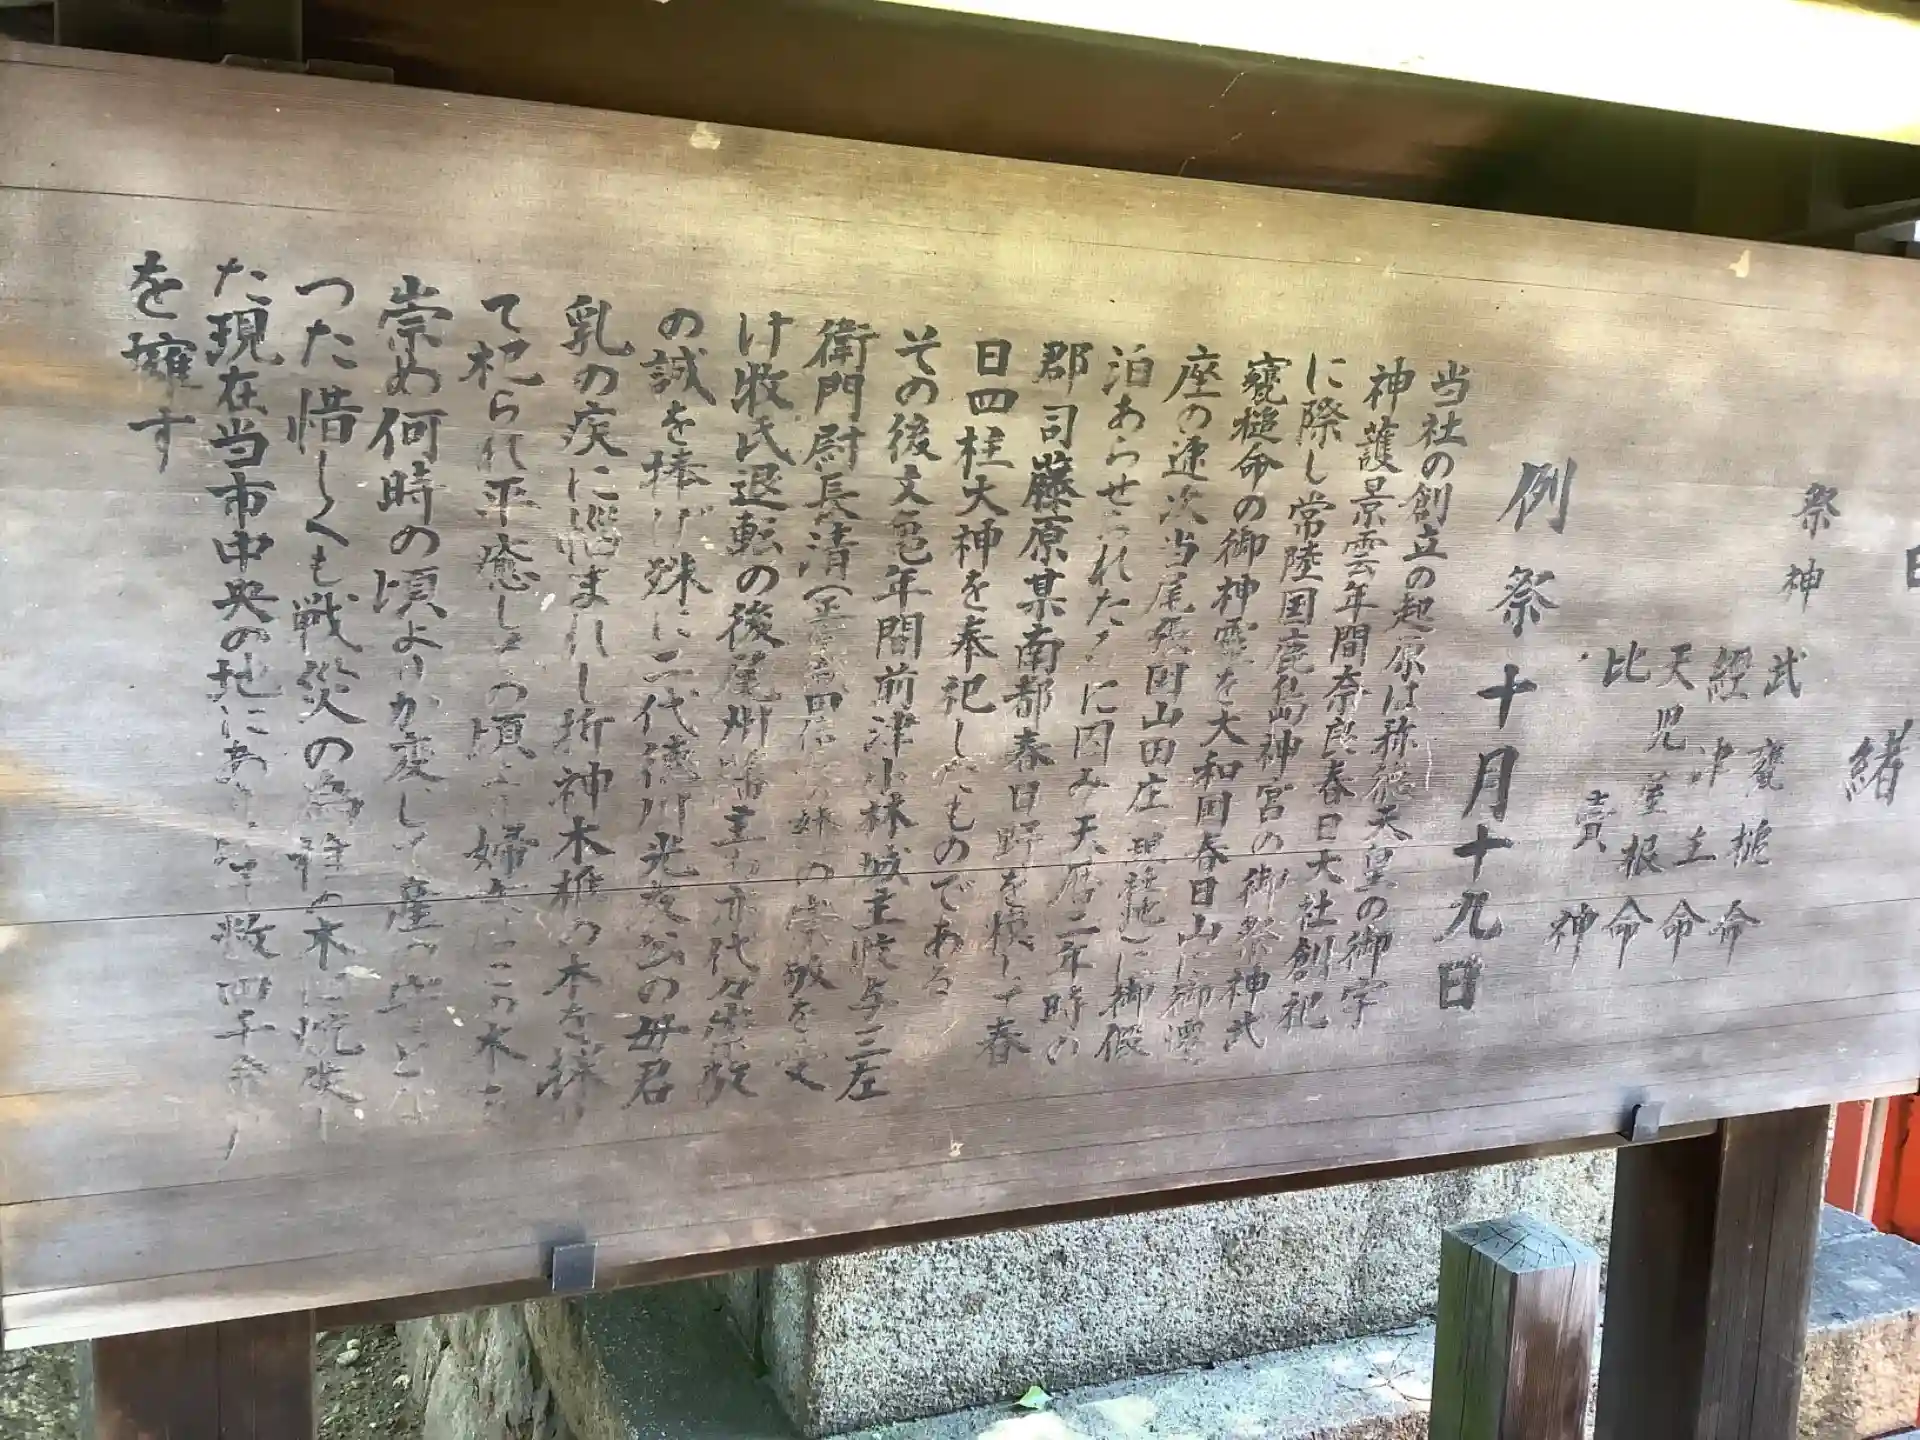 緒
祭神
武甕槌命
経津主命
天児屋根命
比売神
例祭 十月十九日
当社の創立の起原は称徳天皇の御宇
神護景雲年間奈良春日大社創祀
に際し常陸国鹿島神宮の御祭神武
甕槌命の御神霊を大和国春日山に御遷
座の途次当尾張国山田庄(現社地)に御假
泊あらせられた に因み天暦二年時の
郡司藤原某南都春日野を模して春
日四柱大神を奉祀したものである
その後文亀年間前津小林城主牧与三左
衛門尉長清( 田信 の妹の崇敬を受
け牧氏退転の後尾州藩主 亦代々崇敬
の誠を捧げ殊に二代徳川光友公の母君
乳の疾に悩まれし折神木椎の木を採り
て祀られ平癒し の頃より婦女はこの木を
崇め何時の頃よりか変して産の と な
つた惜しくも戦災の為椎の木は焼失し
た現在当市中央の地にあり 数四千余戸
を擁す